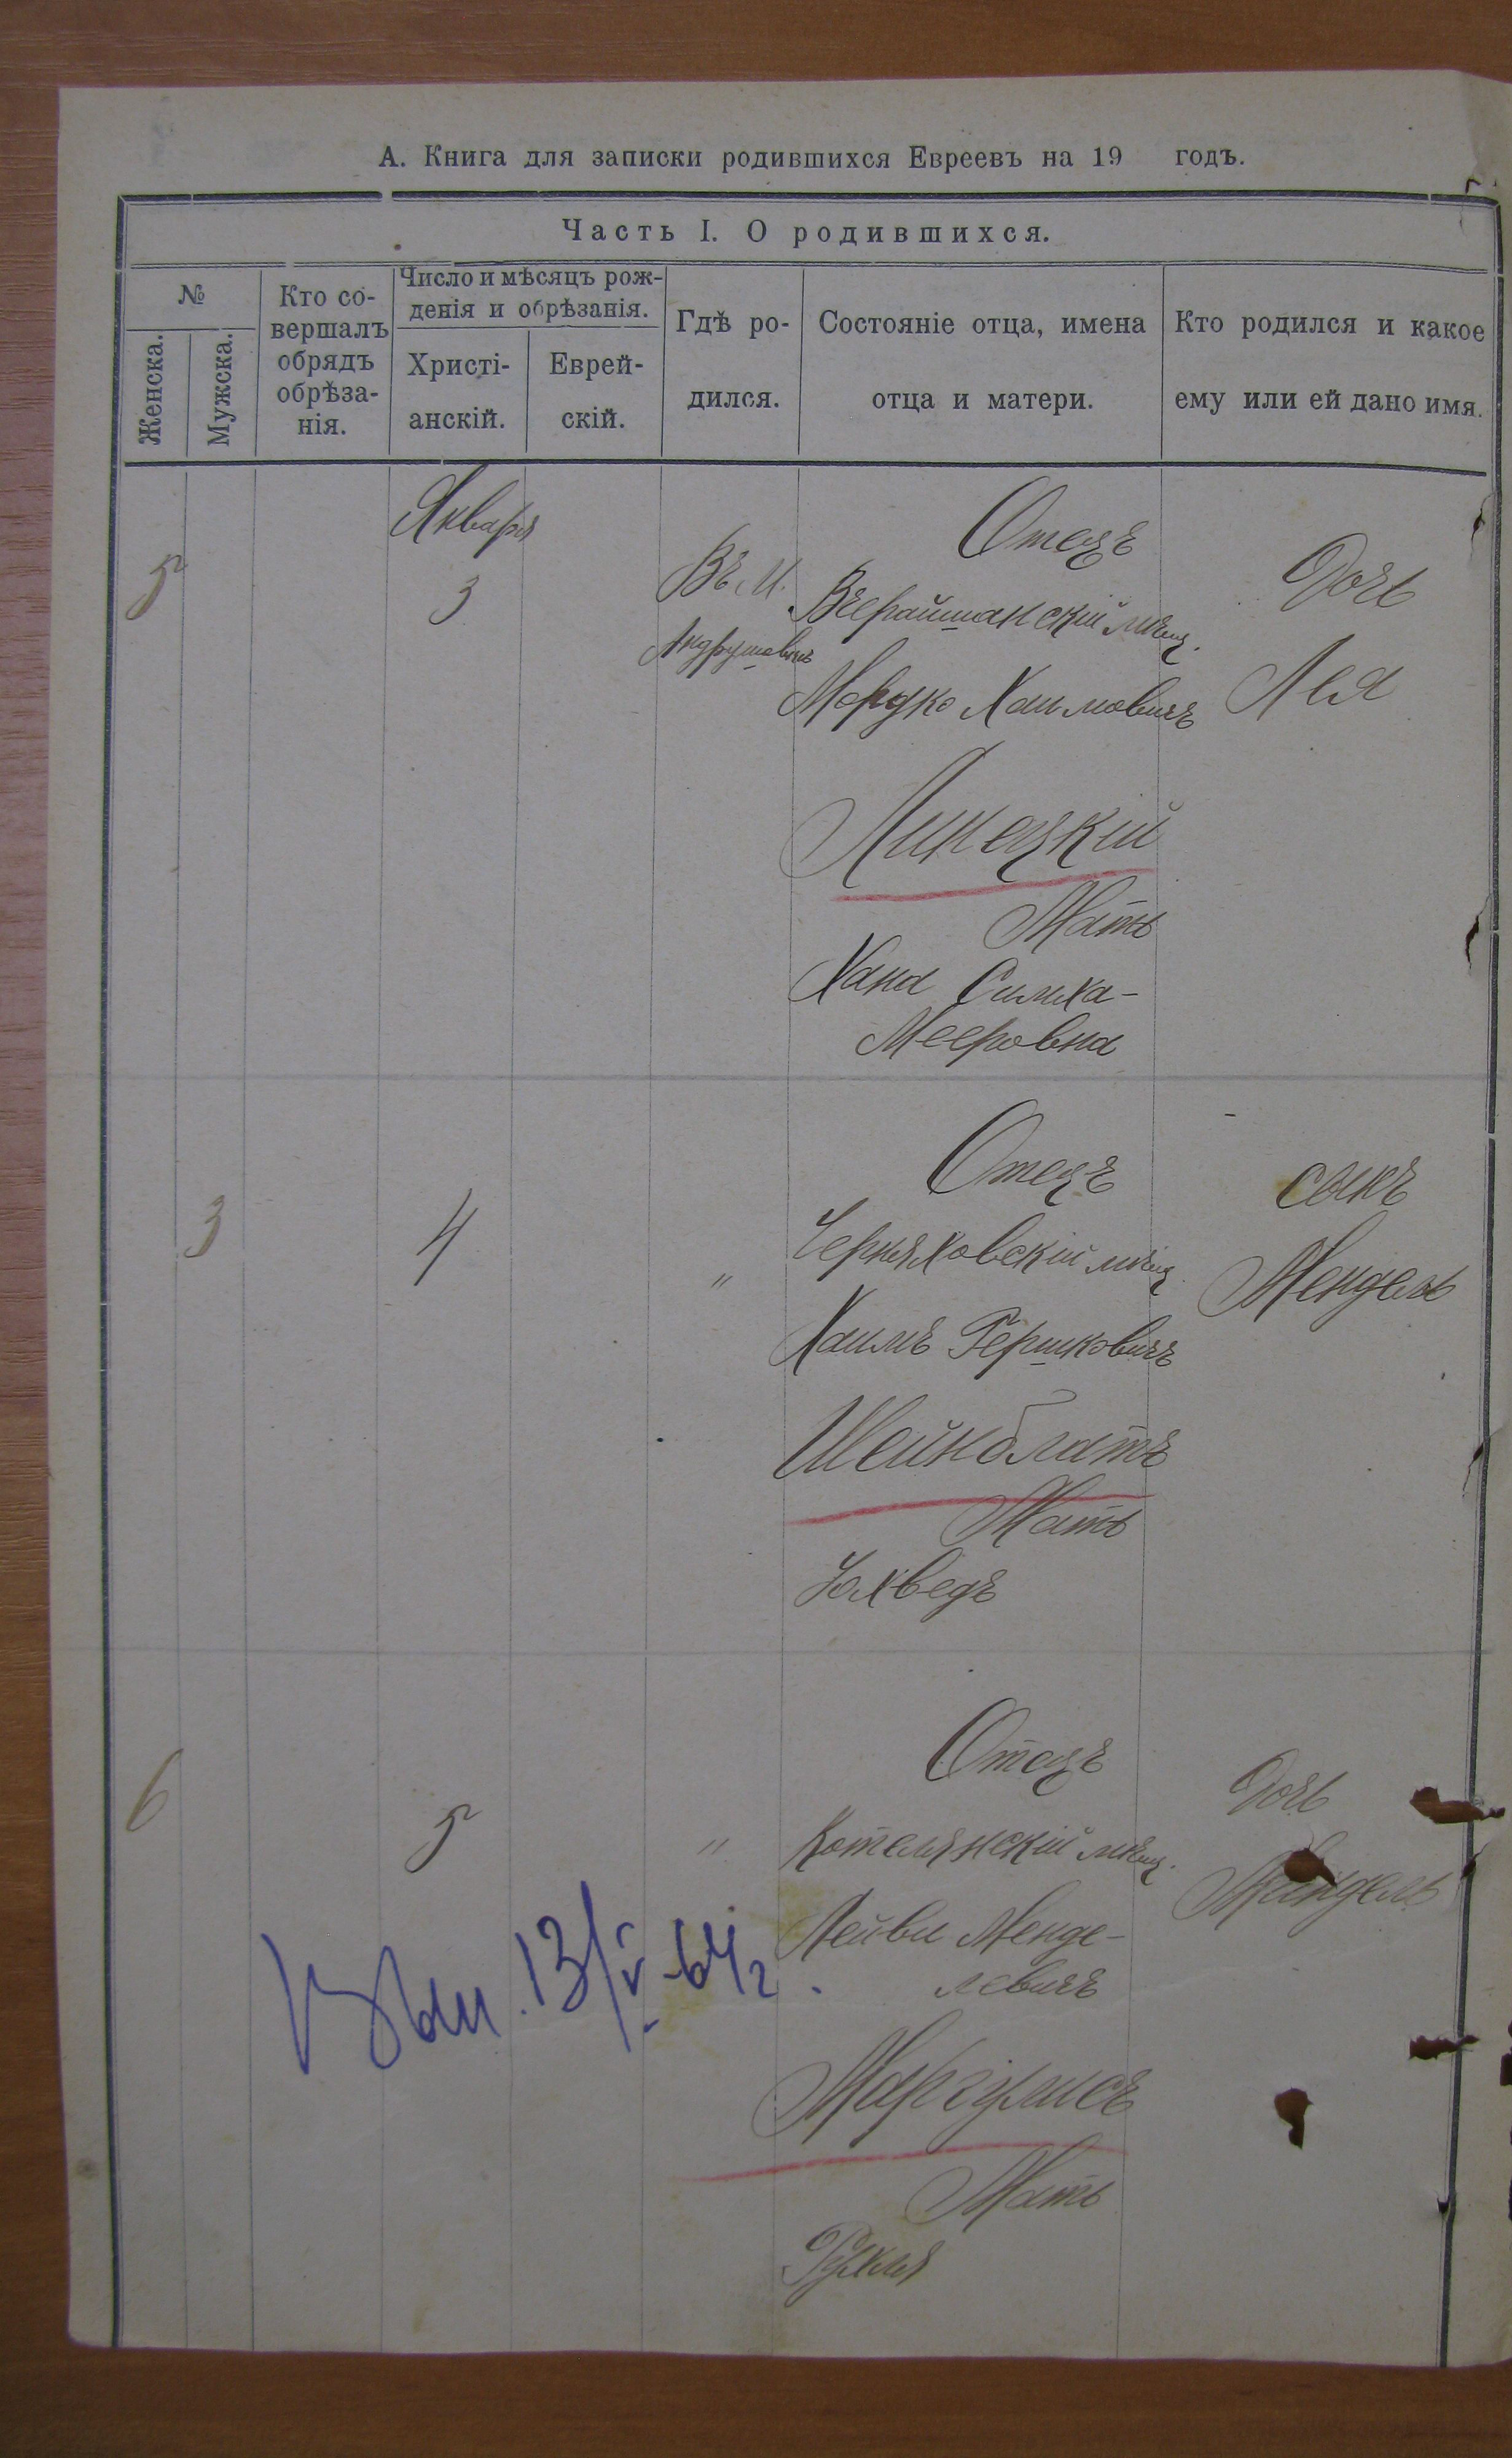 А. Книга для записки родившихся Евреевъ на 19 годъ.
Часть I. О родившихся.
№
Женска.
Мужска.
Кто со-
вершалъ
обрядъ
обрѣза-
нія.
Число и мѣсяцъ рож-
денія и обрѣзанія.
Христі-
анскій.
Еврей-
скій.
Гдѣ ро-
дился.
Состояніе отца, имена
отца и матери.
Кто родился и какое
ему или ей дано имя.
Января
5
3
Въ М.
Отецъ
Вчерайшанскій мѣщ.
Мордко Хаимовичъ
Липецкій
Мать
Хана Симха-
Мееровна
Дочь
Лея
3
4
"
Отецъ
Черняховскій мѣщ.
Хаимъ Гершковичъ
Шейнблатъ
Мать
Юхведъ
сынъ
Мендель
6
5
"
Отецъ
Котелянскій мѣщ.
Лейви Менде-
левичъ
Маргулисъ
Мать
Рухля
Дочь
13/V-64 г.